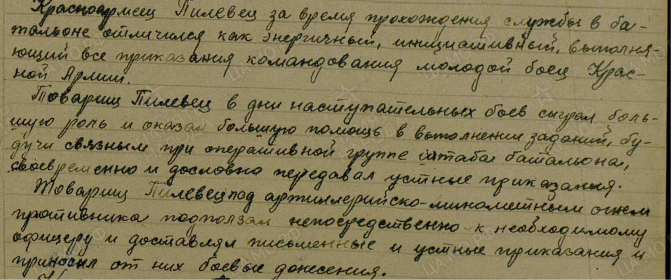 Красноармеец Пилевец за время прохождения службы в ба-
тальоне отличился как энергичный, инициативный, выполня-
ющий все приказания командования молодой боец Крас-
ной Армии.
Товарищ Пилевец в дни наступательных боев сыграл боль-
шую роль и оказал большую помощь в выполнении заданий, бу-
дучи связным при оперативной группе штаба баталиона,
своевременно и дословно передавал устные приказания.
Товарищ Пилевец под артиллерийско-минометным огнем
противника подползал непосредственно к необходимому
офицеру и доставлял письменные и устные приказания и
приносил от них боевые донесения.